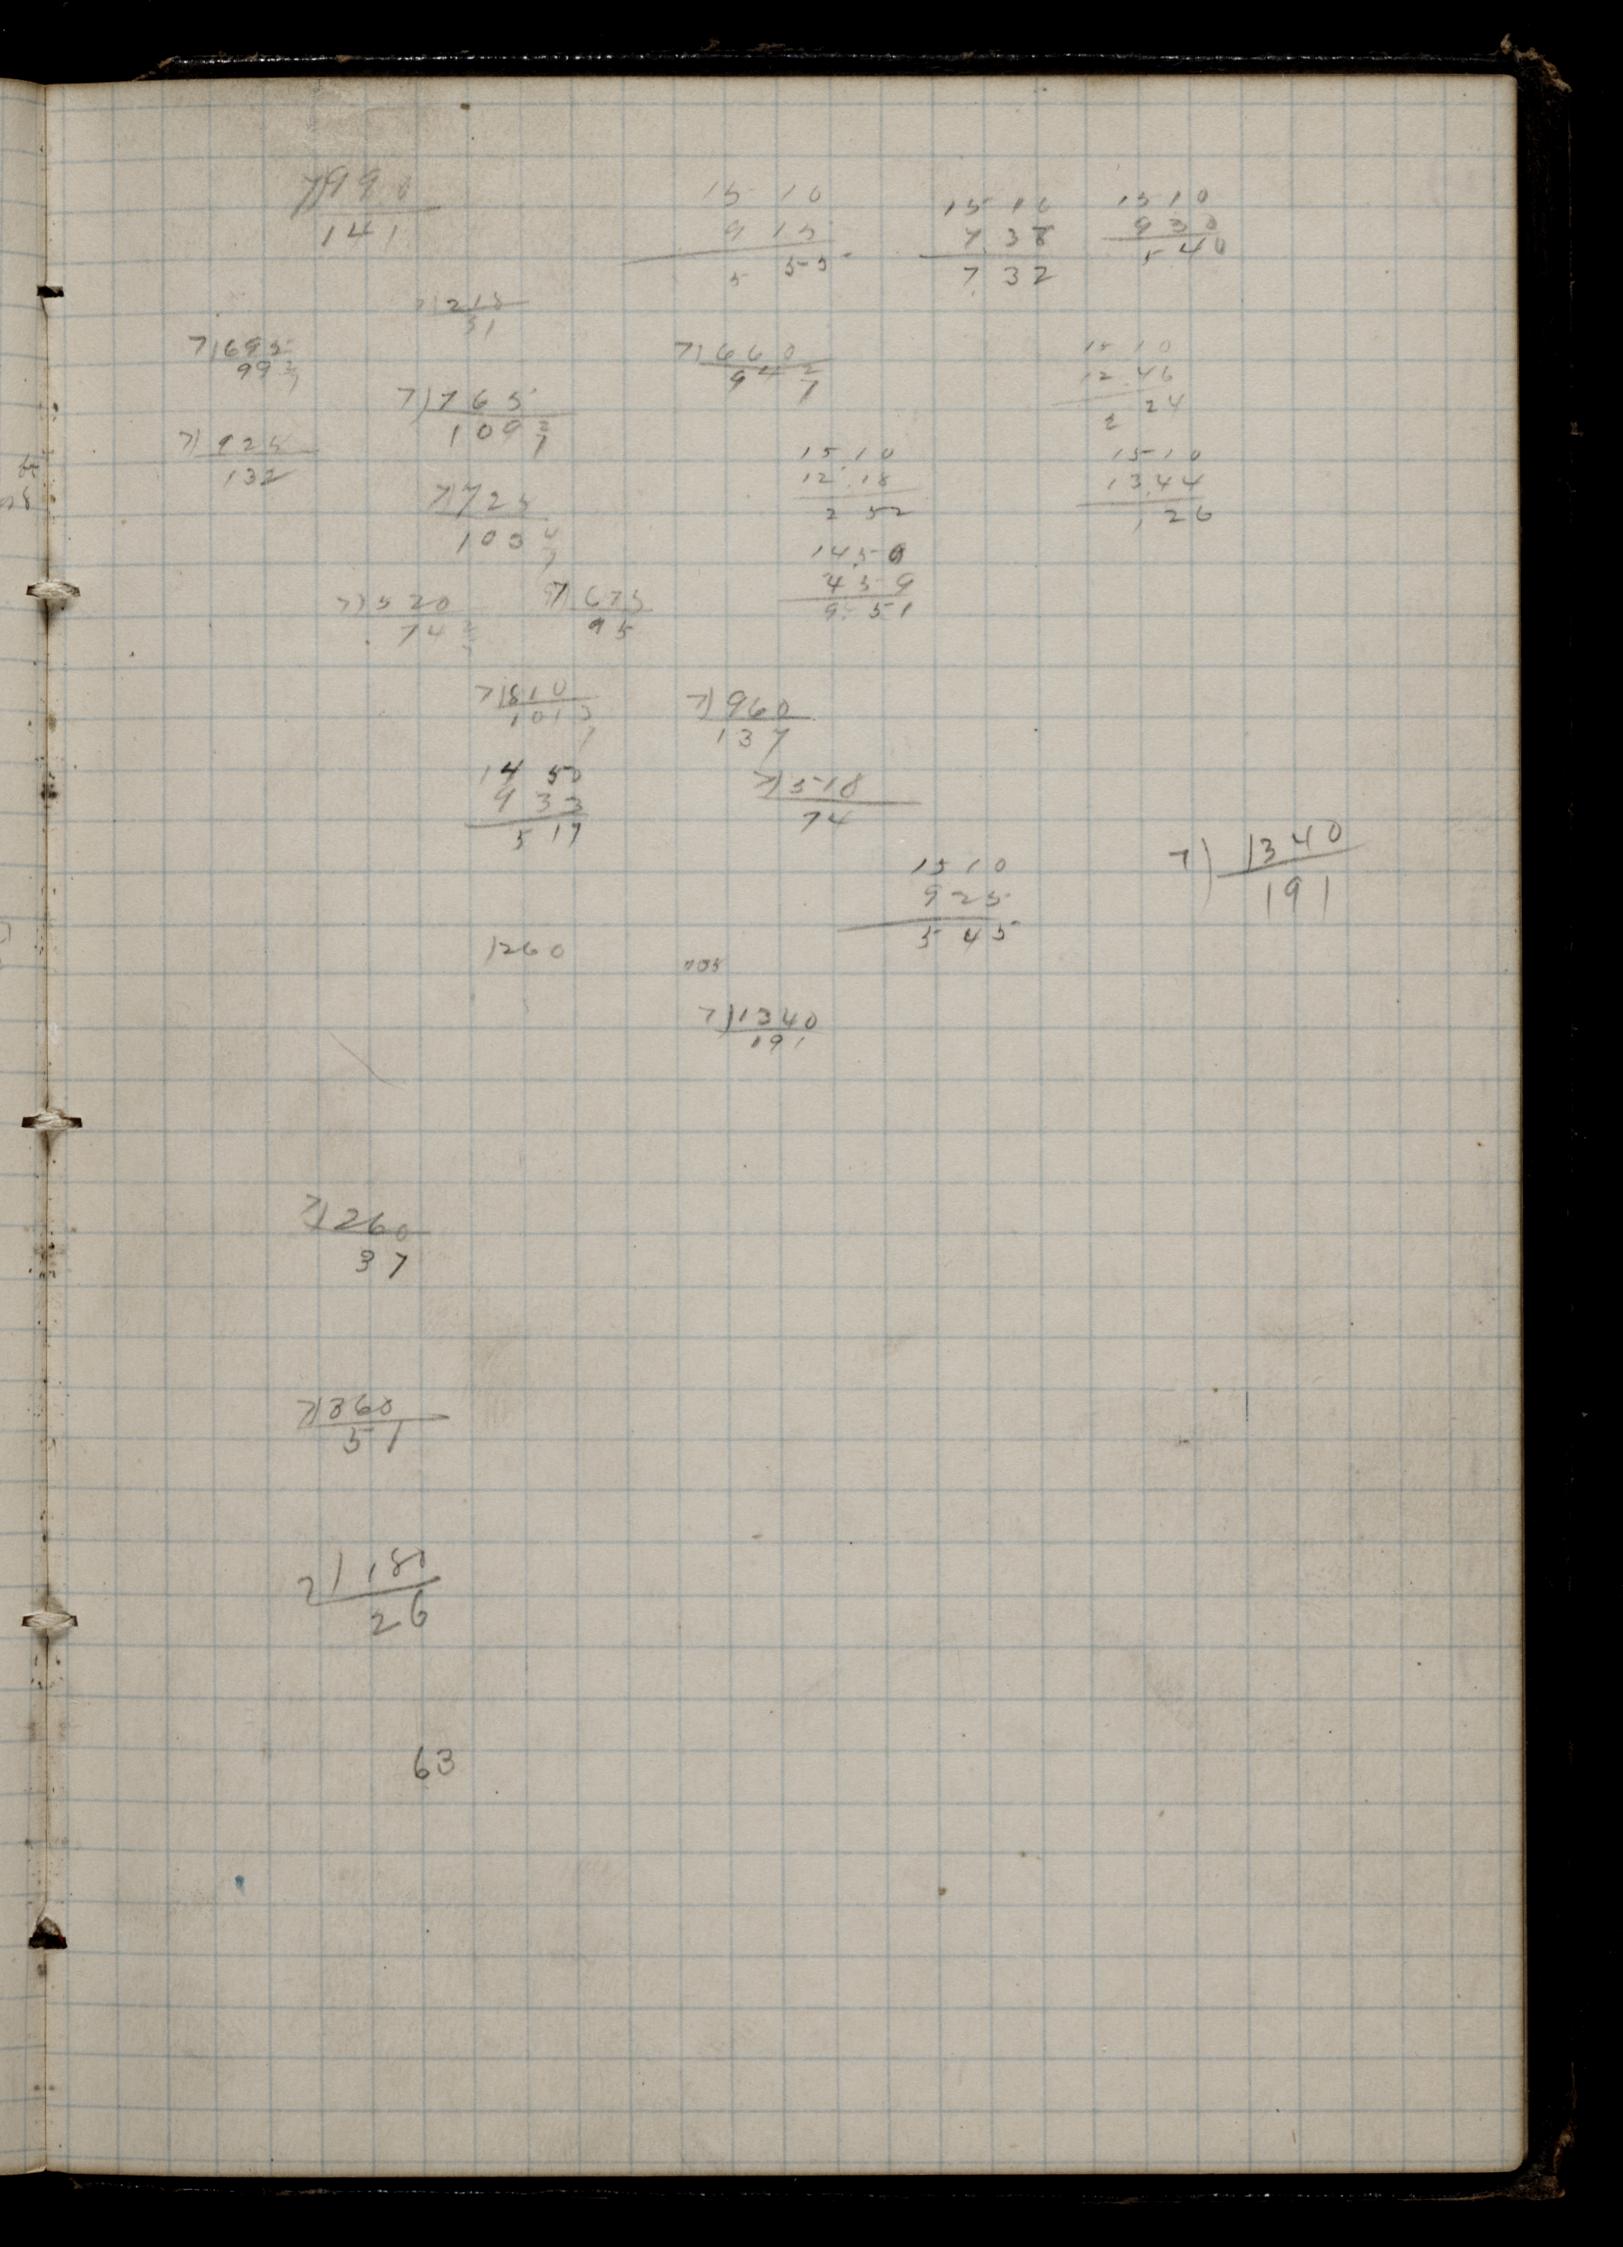 7)990
141
15 10
9 15
5 55
15 10
7 38
7 32
15 10
9 30
5 40
7)218
31
7)695
99 2/7
7)660
94 2/7
15 10
12 46
2 24
7)765
109 2/7
7)925
132
15 10
12 18
2 52
15 10
13 44
1 26
7)725
103 4/7
14 50
4 59
9 51
7)520
74 2/7
7)675
95
7)810
101
7)960
137
14 50
9 33
5 17
7)518
74
15 10
9 25
5 45
7)1340
191
)260
7)1340
191
7)260
37
7)360
51
7)180
26
63